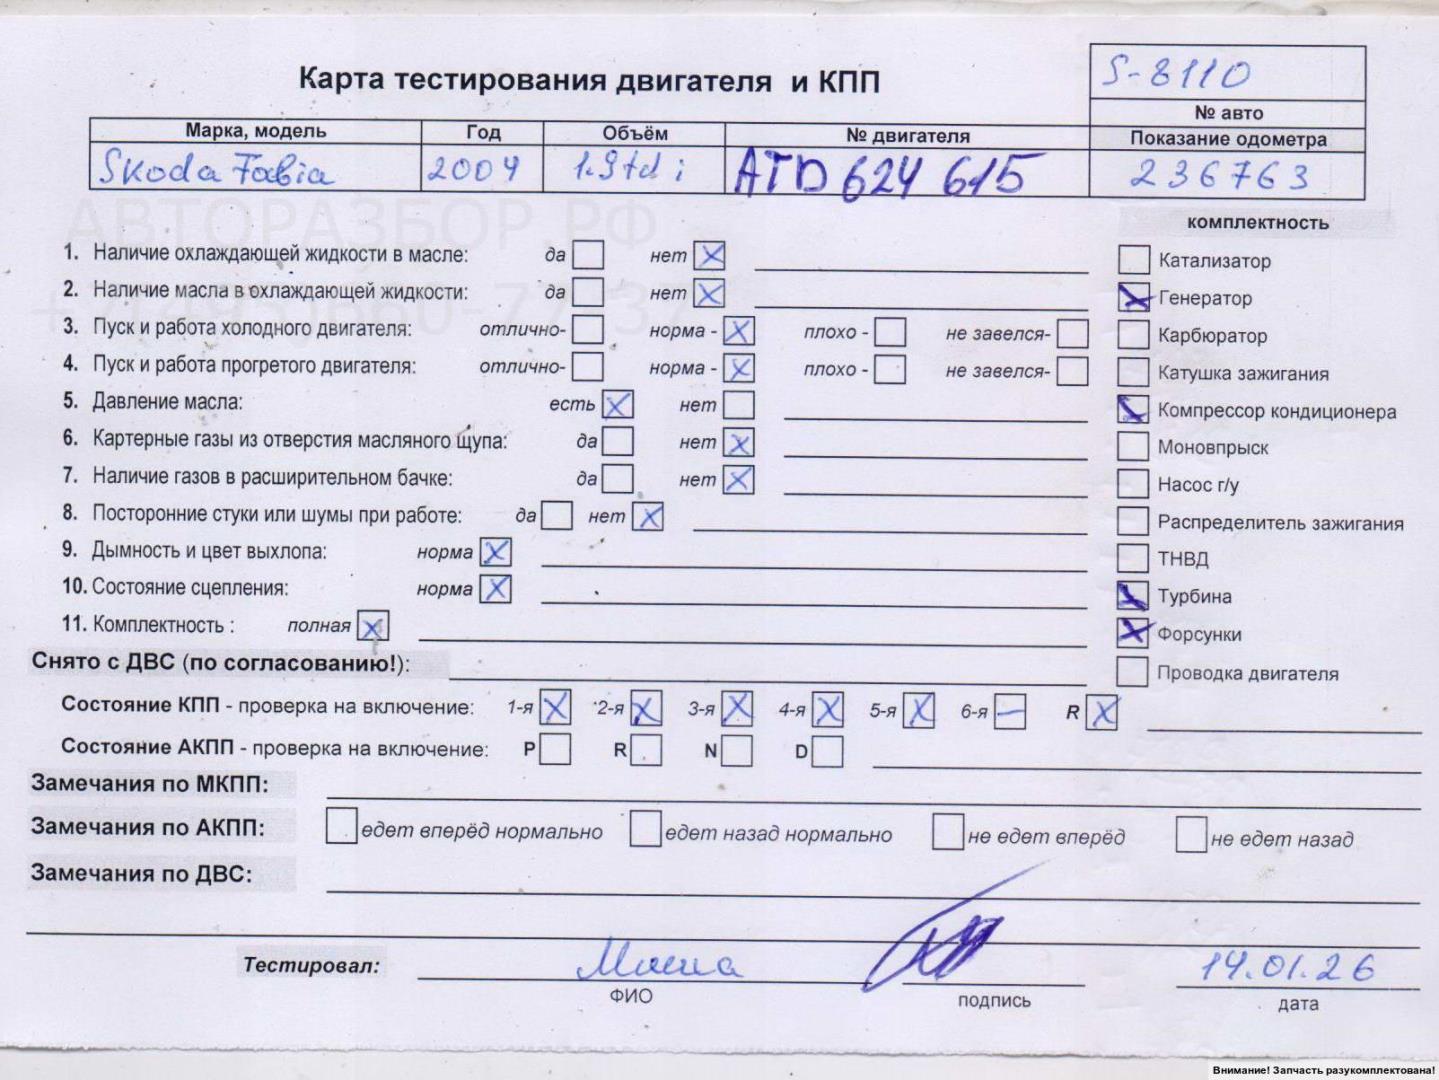 S-8110
Карта тестирования двигателя и КПП
№ авто
Марка, модель Год Объём № двигателя Показание одометра
Skoda Fabia 2004 1.9tdi ATD 624 615 236763
АВТОРАЗБОР.РФ
комплектность
1. Наличие охлаждающей жидкости в масле: да нет X
Катализатор
2. Наличие масла в охлаждающей жидкости: да нет X
Генератор X
3. Пуск и работа холодного двигателя: отлично- норма - X плохо - не завелся-
Карбюратор
4. Пуск и работа прогретого двигателя: отлично- норма - X плохо - не завелся-
Катушка зажигания
5. Давление масла: есть X нет
Компрессор кондиционера X
6. Картерные газы из отверстия масляного щупа: да нет X
Моновпрыск
7. Наличие газов в расширительном бачке: да нет X
Насос г/у
8. Посторонние стуки или шумы при работе: да нет X
Распределитель зажигания
9. Дымность и цвет выхлопа: норма X
ТНВД
10. Состояние сцепления: норма X
Турбина X
11. Комплектность : полная X
Форсунки X
Снято с ДВС (по согласованию!):
Проводка двигателя
Состояние КПП - проверка на включение: 1-я X 2-я X 3-я X 4-я X 5-я X 6-я — R X
Состояние АКПП - проверка на включение: P R N D
Замечания по МКПП:
Замечания по АКПП: едет вперёд нормально едет назад нормально не едет вперёд не едет назад
Замечания по ДВС:
Тестировал: 14.01.26
ФИО подпись дата
Внимание! Запчасть разукомплектована!